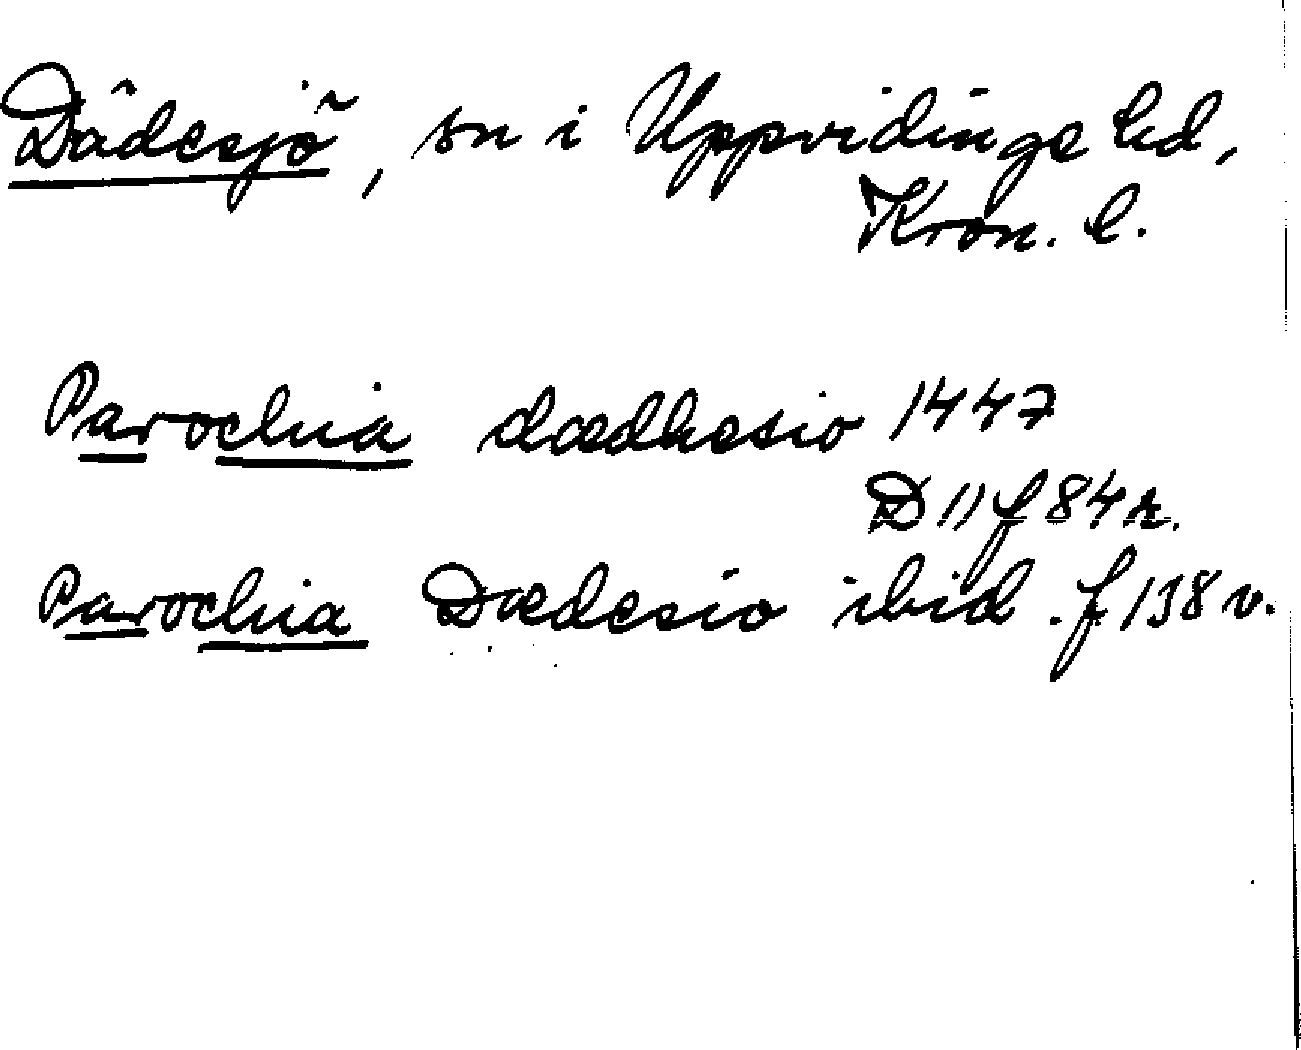 Dädesjö, sn i Uppvidinge hd,
Kron. l.
Parochia dædhesio 1447
D 11 f 84 r.
Parochia Dædesio ibid. f 138 v.